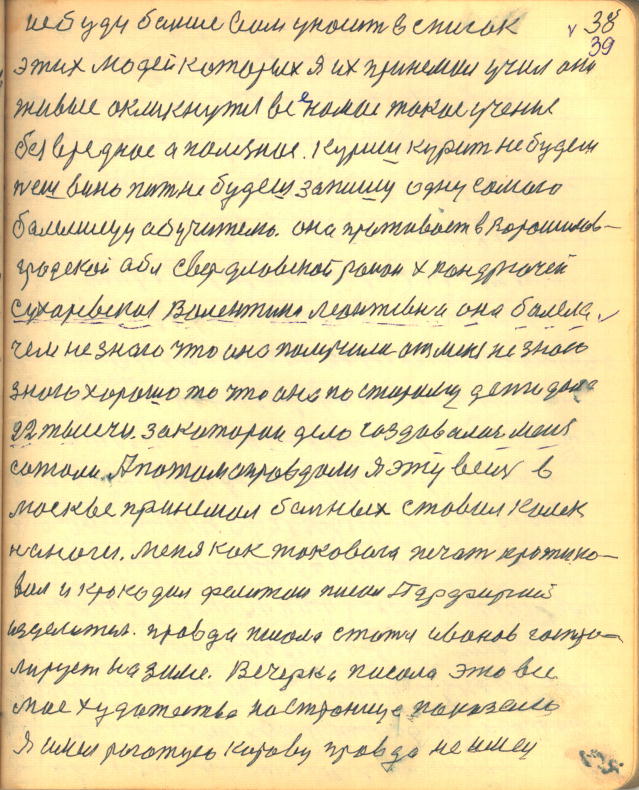 не буду больше Вам уносит в список
38
39
этих людей которых я их принемал учил они
живые окликнутся все помое такое учение
без вредное а полезное. Куриш курит не будеш
пеш вино пит не будеш запишу одну самого
балеющую обучитель. она проживает в Ворошилов-
градской обл Свердловской район х кондрючей
Сухаревская Валентина леонтевна она балела
чем не знаю что она получила от меня не знаю
знаю хорошо то что она по старому денги дала
22 тысечи. за котории дело создавалась меня
сотоли. А потом оправдали я эту вещ в
москве принемал больных ставил калек
на ноги. меня как таковога печат критико-
вал и крокодил фелитон писал Парфирий
изделител. правда писала стати иванов гастро-
лирует на зиме. Вечерка писала это все
мае художества на странице показаль
я имел рогатую корову правда не имел